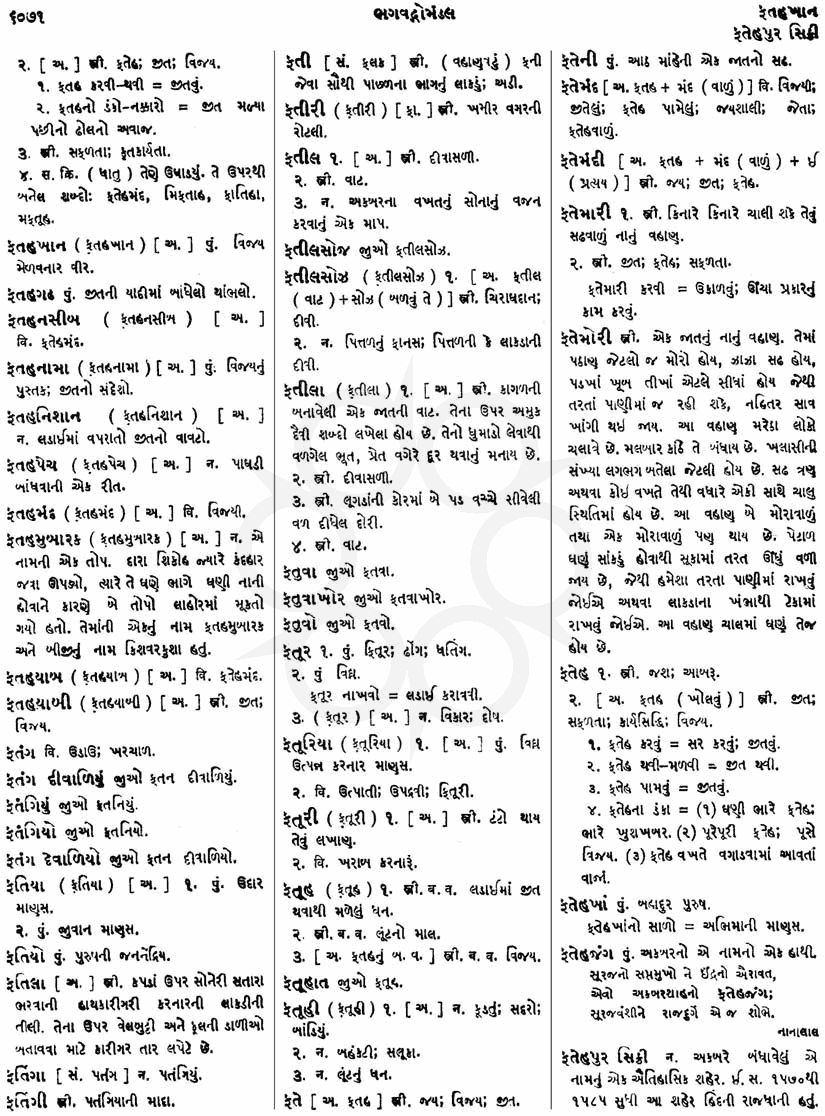 ૬૦૭૧
ભગવદ્ગોમંડલ
ફતહખાન
ફતેહપુર સિક્રી
૨. [ અ. ] સ્ત્રી. ફતેહ; જીત; વિજય.
૧. ફતહ કરવી-થવી = જીતવું.
૨. ફતહનો ડંકો-નક્કારો = જીત મળ્યા
પછીનો ઢોલનો અવાજ.
૩. સ્ત્રી. સફળતા; કૃતકાર્યતા.
૪. સ. ક્રિ. ( ધાતુ ) તેણે ઉઘાડ્યું. તે ઉપરથી
બનેલ શબ્દો: ફતેહમંદ, મિફતાહ, ફાતિહા,
મફતૂહ.
ફતહખાન ( ફતહખાન ) [ અ. ] પું. વિજય
મેળવનાર વીર.
ફતહગઢ પું. જીતની યાદીમાં બાંધેલો થાંભલો.
ફતહનસીબ ( ફતહનસીબ ) [ અ. ]
વિ. ફતેહમંદ.
ફતહનામા ( ફતહનામા ) [ અ. ] પું. વિજયનું
પુસ્તક; જીતનો સંદેશો.
ફતહનિશાન ( ફતહનિશાન ) [ અ. ]
ન. લડાઈમાં વપરાતો જીતનો વાવટો.
ફતહપેચ ( ફતહપેચ ) [ અ. ] ન. પાઘડી
બાંધવાની એક રીત.
ફતહમંદ ( ફતહમંદ ) [ અ. ] વિ. વિજયી.
ફતહમુબારક ( ફતહમુબારક ) [ અ. ] ન. એ
નામની એક તોપ. દારા શિકોહ જ્યારે કંદહાર
જવા ઊપડ્યો, ત્યારે તે ઘણે ભાગે ઘણી નાની
હોવાને કારણે બે તોપો લાહોરમાં મૂકતો
ગયો હતો. તેમાંની એકનું નામ ફતહમુબારક
અને બીજીનું નામ કિશવરકુશા હતું.
ફતહયાબ ( ફતહયાબ ) [ અ. ] વિ. ફતેહમંદ.
ફતહયાબી ( ફતહયાબી ) [ અ. ] સ્ત્રી. જીત;
વિજય.
ફતંગ વિ. ઉડાઉ; ખરચાળ.
ફતંગ દીવાળિયું જુઓ ફતન દીવાળિયું.
ફતંગિયું જુઓ ફતનિયું.
ફતંગિયો જુઓ ફતનિયો.
ફતંગ દેવાળિયો જુઓ ફતન દીવાળિયો.
ફતિયા ( ફતિયા ) [ અ. ] ૧. પું. ઉદાર
માણસ.
૨. પું. જુવાન માણસ.
ફતિયો પું. પુરુષની જનનેંદ્રિય.
ફતિલા [ અ. ] સ્ત્રી. કપડાં ઉપર સોનેરી સતારા
ભરવાની હાથકારીગરી કરનારની લાકડીની
તીલી. તેના ઉપર વેલબુટ્ટી અને ફૂલની ડાળીઓ
બતાવવા માટે કારીગર તાર લપેટે છે.
ફતિંગા [ સં. પતંગ ] ન. પતંગિયું.
ફતિંગી સ્ત્રી. પતંગિયાની માદા.
ફતી [ સં. ફલક ] સ્ત્રી. ( વહાણવટું ) ફની
જેવા સૌથી પાછળના ભાગનું લાકડું; અડી.
ફતીરી ( ફતીરી ) [ ફા. ] સ્ત્રી. ખમીર વગરની
રોટલી.
ફતીલ ૧. [ અ. ] સ્ત્રી. દીવાસળી.
૨. સ્ત્રી. વાટ.
૩. ન. અકબરના વખતનું સોનાનું વજન
કરવાનું એક માપ.
ફતીલસોજ જુઓ ફતીલસોઝ.
ફતીલસોઝ ( ફતીલસોઝ ) ૧. [ અ. ફતીલ
( વાટ )+સોઝ ( બળવું તે ) ] સ્ત્રી. ચિરાઘદાન;
દીવી.
૨. ન. પિત્તળનું ફાનસ; પિત્તળની કે લાકડાની
દીવી.
ફતીલા ( ફતીલા ) ૧. [ અ. ] સ્ત્રી. કાગળની
બનાવેલી એક જાતની વાટ. તેના ઉપર અમુક
દૈવી શબ્દો લખેલા હોય છે. તેનો ધુમાડો લેવાથી
વળગેલ ભૂત, પ્રેત વગેરે દૂર થવાનું મનાય છે.
૨. સ્ત્રી. દીવાસળી.
૩. સ્ત્રી. લૂગડાંની કોરમાં બે પડ વચ્ચે સીવેલી
વળ દીધેલ દોરી.
૪. સ્ત્રી. વાટ.
ફતુવા જુઓ ફતવા.
ફતુવાખોર જુઓ ફતવાખોર.
ફતુવો જુઓ ફતવો.
ફતૂર ૧. પું. ફિતૂર; ઢોંગ; ધતિંગ.
૨. પું વિઘ્ન.
ફતૂર નાખવો = લડાઈ કરાવવી.
૩. ( ફતૂર ) [ અ. ] ન. વિકાર; દોષ.
ફતૂરિયા ( ફતૂરિયા ) ૧. [ અ. ] પું. વિઘ્ન
ઉત્પન્ન કરનાર માણસ.
૨. વિ. ઉત્પાતી; ઉપદ્રવી; ફિતૂરી.
ફતૂરી ( ફતૂરી ) ૧. [ અ. ] સ્ત્રી. ટંટો થાય
તેવું લખાણ.
૨. વિ. ખરાબ કરનારું.
ફતૂહ ( ફતૂહ ) ૧. સ્ત્રી. બ. વ. લડાઈમાં જીત
થવાથી મળેલું ધન.
૨. સ્ત્રી. બ. વ. લૂંટનો માલ.
૩. [ અ. ફતહનું બ. વ. ] સ્ત્રી. બ. વ. વિજય.
ફતૂહાત જુઓ ફતૂહ.
ફતૂહી ( ફતૂહી ) ૧. [ અ. ] ન. કૂડતું; સદરો;
બાંડિયું.
૨. ન. બહંકટી; સલૂકા.
૩. ન. લૂંટનું ધન.
ફતે [ અ. ફતહ ] સ્ત્રી. જય; વિજય; જીત.
ફતેની પું. આઠ માંહેની એક જાતનો સઢ.
ફતેમંદ [ અ. ફતહ + મંદ ( વાળું ) ] વિ. વિજયી;
જીતેલું; ફતેહ પામેલું; જયશાલી; જેતા;
ફતેહવાળું.
ફતેમંદી [ અ. ફતહ + મંદ ( વાળું ) + ઈ
( પ્રત્યય ) ] સ્ત્રી. જય; જીત; ફતેહ.
ફતેમારી ૧. સ્ત્રી. કિનારે કિનારે ચાલી શકે તેવું
સઢવાળું નાનું વહાણ.
૨. સ્ત્રી. જીત; ફતેહ; સફળતા.
ફતેમારી કરવી = ઉકાળવું; ઊંચા પ્રકારનું
કામ કરવું.
ફતેમોરી સ્ત્રી. એક જાતનું નાનું વહાણ. તેમાં
પઠાણ જેટલો જ મોરો હોય, ઝાઝા સઢ હોય,
પડખાં ખૂબ તીખાં એટલે સીધાં હોય જેથી
તરતાં પાણીમાં જ રહી શકે, નહિતર સાવ
ખાંગી થઈ જાય. આ વહાણ મરેઠા લોકો
ચલાવે છે. મલબાર કાંઠે તે બંધાય છે. ખલાસીની
સંખ્યા લગભગ બતેલા જેટલી હોય છે. સઢ ત્રણ
અથવા કોઈ વખતે તેથી વધારે એકી સાથે ચાલુ
સ્થિતિમાં હોય છે. આ વહાણ બે મોરાવાળું
તથા એક મોરાવાળું પણ થાય છે. પેટાળ
ઘણું સાંકડું હોવાથી સૂકામાં તરત ઊંધું વળી
જાય છે, જેથી હમેશા તરતા પાણીમાં રાખવું
જોઈએ અથવા લાકડાના ખંભાથી ટેકામાં
રાખવું જોઈએ. આ વહાણ ચાલમાં ઘણું તેજ
હોય છે.
ફતેહ ૧. સ્ત્રી. જશ; આબરૂ.
૨. [ અ. ફતહ ( ખોલવું ) ] સ્ત્રી. જીત;
સફળતા; કાર્યસિદ્ધિ; વિજય.
૧. ફતેહ કરવું = સર કરવું; જીતવું.
૨. ફતેહ થવી-મળવી = જીત થવી.
૩. ફતેહ પામવું = જીતવું.
૪. ફતેહના ડંકા = (૧) ઘણી ભારે ફતેહ;
ભારે ખુશખબર. (૨) પૂરેપૂરી ફતેહ; પૂર્ણ
વિજય. (૩) ફતેહ વખતે વગાડવામાં આવતાં
વાજાં.
ફતેહખાં પું. બહાદુર પુરુષ.
ફતેહખાંનો સાળો = અભિમાની માણસ.
ફતેહજંગ પું. અકબરનો એ નામનો એક હાથી.
સૂરજનો સપ્તમુખો ને ઈંદ્રનો ઐરાવત,
એવો અકબરશાહનો ફતેહજંગ;
સૂરજવંશીને રાજદુર્ગે એ જ શોભે.
નાનાલાલ
ફતેહપુર સિક્રી ન. અકબરે બંધાવેલું એ
નામનું એક ઐતિહાસિક શહેર. ઈ. સ. ૧૫૭૦થી
૧૫૮૫ સુધી આ શહેર હિંદની રાજધાની હતું.